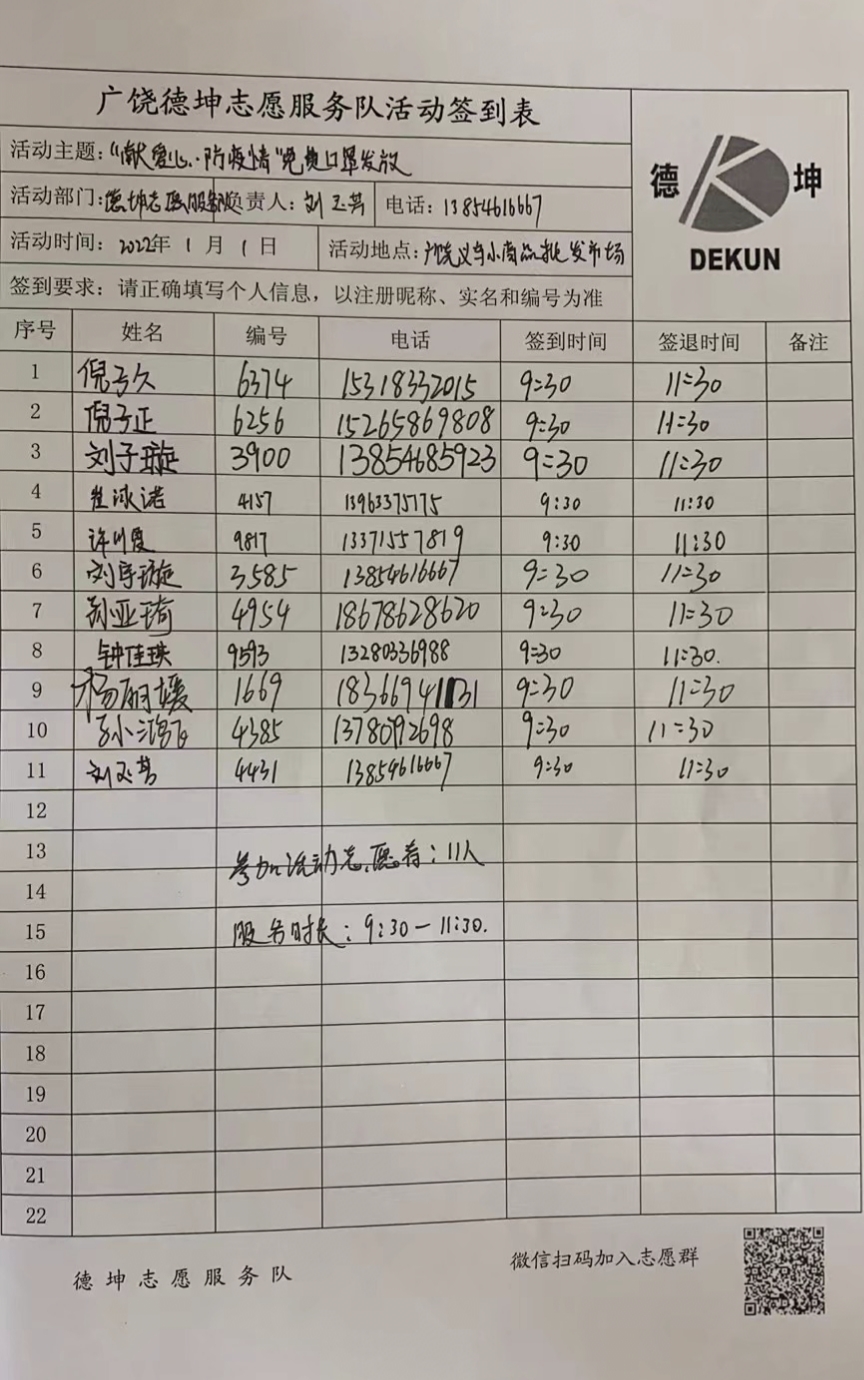 广饶德坤志愿服务队活动签到表
活动主题："献爱心·防疫情"免费口罩发放
活动部门：德坤志愿服务队 负责人：刘玉芳 电话：13854616667
活动时间：2022年1月1日 活动地点：广饶义乌小商品批发市场
签到要求：请正确填写个人信息，以注册昵称、实名和编号为准
德 坤
DEKUN
序号 姓名 编号 电话 签到时间 签退时间 备注
1 倪子久 6374 15318332015 9:30 11:30
2 倪子正 6256 15265869808 9:30 11:30
3 刘子璇 3900 13854685923 9:30 11:30
4 崔冰诺 4157 13963375175 9:30 11:30
5 9817 13371557819 9:30 11:30
6 刘宇璇 3585 13854616667 9:30 11:30
7 孙亚琦 4954 18678628620 9:30 11:30
8 钟佳琪 9593 13280336988 9:30 11:30.
9 杨丽媛 1669 9:30 11:30
10 4385 13780792698 9:30 11:30
11 刘玉芳 4431 13854616667 9:30 11:30
12
13
参加活动志愿者：11人
14
15 服务时长：9:30－11:30.
16
17
18
19
20
21
22
德坤志愿服务队
微信扫码加入志愿群